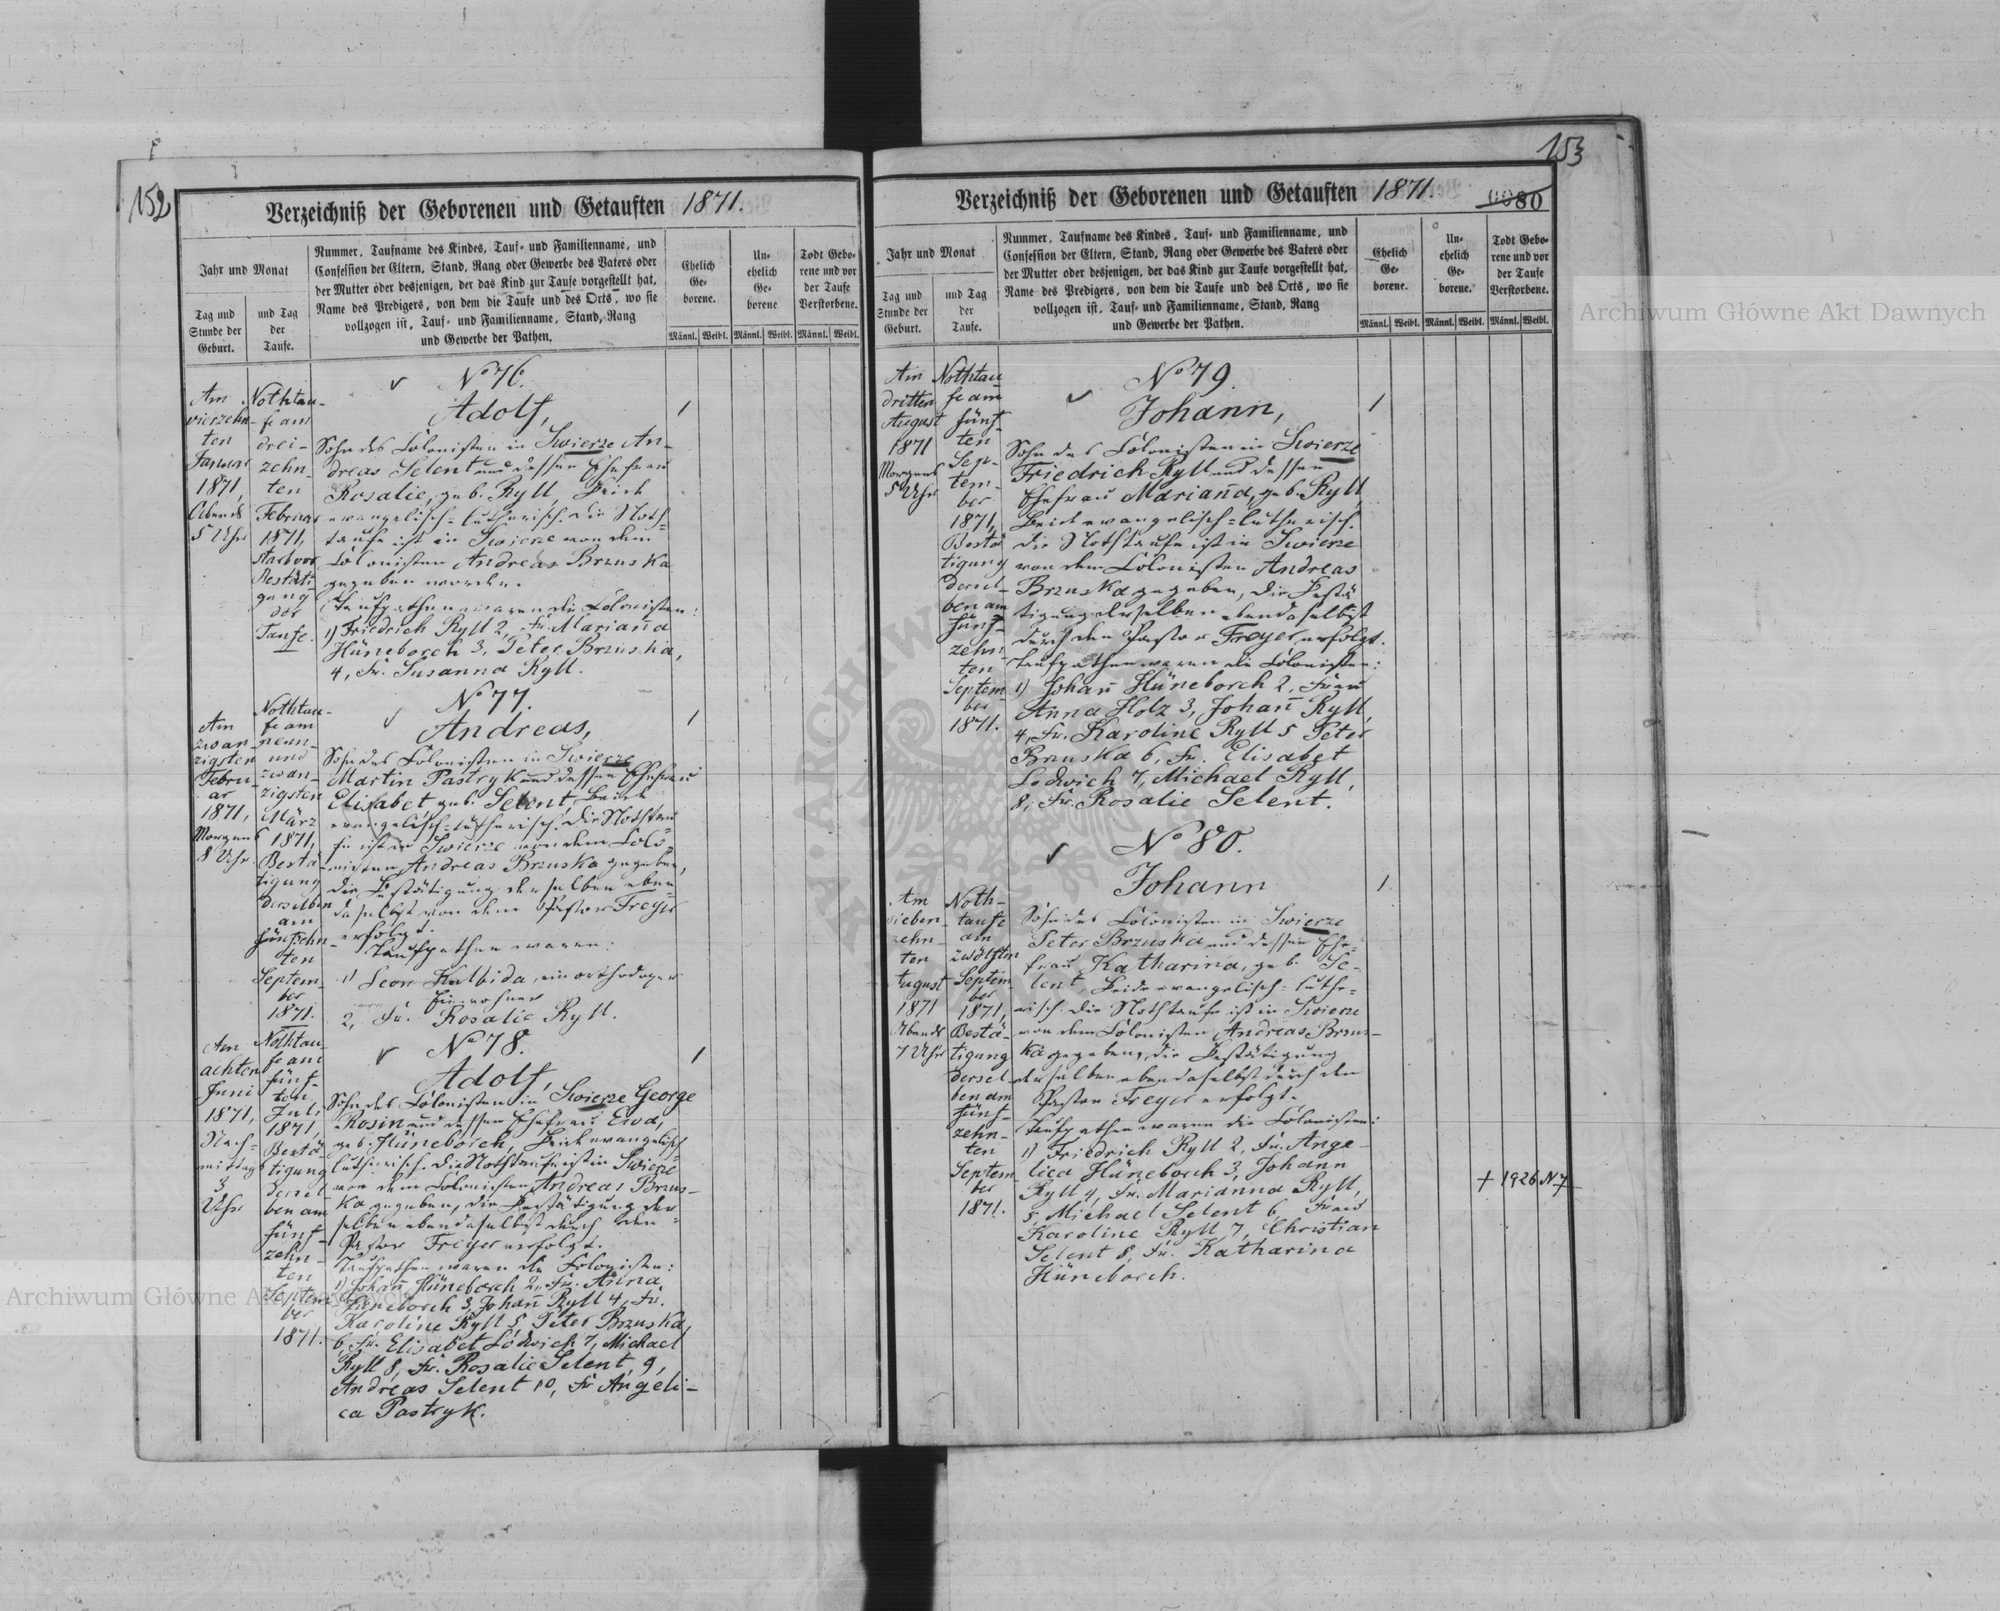 152
Verzeichniß der Geborenen und Getauften 1871.
Jahr und Monat
Tag und Stunde der Geburt.
und Tag der Taufe.
Nummer, Taufname des Kindes, Tauf- und Familienname, und
Confession der Eltern, Stand, Rang oder Gewerbe des Vaters oder
der Mutter oder desjenigen, der das Kind zur Taufe vorgestellt hat,
Name des Predigers, von dem die Taufe und des Orts, wo sie
vollzogen ist, Tauf- und Familienname, Stand, Rang
und Gewerbe der Pathen.
Ehelich Ge-borene.
Un-ehelich Ge-borene
Todt Gebo-rene und vor der Taufe Verstorbene.
Männl. Weibl. Männl. Weibl. Männl. Weibl.
Am
vierzehn-
ten
Januar
1871,
Abends
5 Uhr
Nothtau-
fe am
drei-
zehn-
ten
Februar
1871,
Bestäti-
gung
der
Taufe.
No 76.
Adolf,
1
Sohn des Colonisten in Swierze An-
dreas Selent und dessen Ehefrau
Rosalie, geb. Ryll, Beide
evangelisch-lutherisch. Die Noth-
taufe ist in Swierze von dem
Colonisten Andreas Brzuska
gegeben worden.
Taufpathen waren die Colonisten:
1) Friedrich Ryll 2, Fr. Marianna
Hüneborch 3, Peter Brzuska,
4, Fr. Susanna Ryll.
Am
zwan-
zigsten
Febru-
ar
1871,
Morgens
8 Uhr.
Nothtau-
fe am
neun-
und
zwan-
zigsten
März
1871,
Bestä-
tigung
derselben
am
fünfzehn-
ten
Septem-
ber
1871.
No 77.
Andreas,
1
Sohn des Colonisten in Swierze
Martin Pastryk und dessen Ehefrau
Elisabet geb. Selent, Beide
evangelisch-lutherisch. Die Nothtau-
fe ist in Swierze von dem Colo-
nisten Andreas Brzuska gegeben,
die Bestätigung derselben eben-
daselbst von dem Pastor Freyer
erfolgt.
Taufpathen waren:
1) Leon Kulbida, ein orthodoxer
Einwohner
2, Fr. Rosalie Ryll.
Am
achten
Juni
1871,
Nach-
mittags
3
Uhr
Nothtau-
fe am
fünf-
ten
Juli
1871,
Bestä-
tigung
dersel-
ben am
fünf-
zehn-
ten
Septem-
ber
1871.
No 78.
Adolf,
1
Sohn des Colonisten in Swierze George
Rosin und dessen Ehefrau Ewa,
geb. Hüneborch, Beide evangelisch-
lutherisch. Die Nothtaufe ist in Swierze
von dem Colonisten Andreas Brzus-
ka gegeben, die Bestätigung der-
selben ebendaselbst durch den
Pastor Freyer erfolgt.
Taufpathen waren die Colonisten:
1) Johan̄ Hüneborch 2, Fr. Anna
Hüneborch 3, Johan̄ Ryll 4, Fr.
Karoline Ryll 5, Peter Brzuska,
6, Fr. Elisabet Lodwich 7, Michael
Ryll 8, Fr. Rosalie Selent, 9,
Andreas Selent 10, Fr Angeli-
ca Pastryk.
153
Verzeichniß der Geborenen und Getauften 1871.
80
Jahr und Monat
Tag und Stunde der Geburt.
und Tag der Taufe.
Nummer, Taufname des Kindes, Tauf- und Familienname, und
Confession der Eltern, Stand, Rang oder Gewerbe des Vaters oder
der Mutter oder desjenigen, der das Kind zur Taufe vorgestellt hat,
Name des Predigers, von dem die Taufe und des Orts, wo sie
vollzogen ist, Tauf- und Familienname, Stand, Rang
und Gewerbe der Pathen.
Ehelich Ge-borene.
Un-ehelich Ge-borene.
Todt Gebo-rene und vor der Taufe Verstorbene.
Männl. Weibl. Männl. Weibl. Männl. Weibl.
Am
dritten
August
1871
Morgens
5 Uhr
Nothtau-
fe am
fünf-
ten
Sep-
tem-
ber
1871,
Bestä-
tigung
dersel-
ben am
fünf-
zehn-
ten
Septem-
ber
1871.
No 79.
Johann,
1
Sohn des Colonisten in Swierze
Friedrich Ryll und dessen
Ehefrau Marian̄a, geb. Ryll,
Beide evangelisch-lutherisch.
Die Nothtaufe ist in Swierze
von dem Colonisten Andreas
Brzuska gegeben, die Bestä-
tigung derselben ebendaselbst
durch den Pastor Freyer erfolgt.
Taufpathen waren die Colonisten:
1) Johan̄ Hüneborch 2, Frau
Anna Holz 3, Johan̄ Ryll,
4, Fr. Karoline Ryll 5 Peter
Brzuska 6, Fr. Elisabet
Lodwich 7, Michael Ryll,
8, Fr. Rosalie Selent.
Am
sieben-
zehn-
ten
August
1871
Abends
7 Uhr
Noth-
taufe
am
zwölften
Septem-
ber
1871,
Bestä-
tigung
dersel-
ben am
fünf-
zehn-
ten
Septem-
ber
1871.
No 80.
Johann
1
Sohn des Colonisten in Swierze
Peter Brzuska und dessen Ehe-
frau Katharina, geb. Se-
lent, Beide evangelisch-luthe-
risch. Die Nothtaufe ist in Swierze
von dem Colonisten Andreas Brzus-
ka gegeben, die Bestätigung
derselben ebendaselbst durch den
Pastor Freyer erfolgt.
Taufpathen waren die Colonisten:
1) Friedrich Ryll 2, Fr. Ange-
lica Hüneborch 3, Johann
Ryll 4, Fr. Marianna Ryll,
5, Michael Selent 6, Frau
Karoline Ryll 7, Christian
Selent 8, Fr. Katharina
Hüneborch.
+ 1926 N 7
Archiwum Główne Akt Dawnych
Archiwum Główne Akt Dawnych